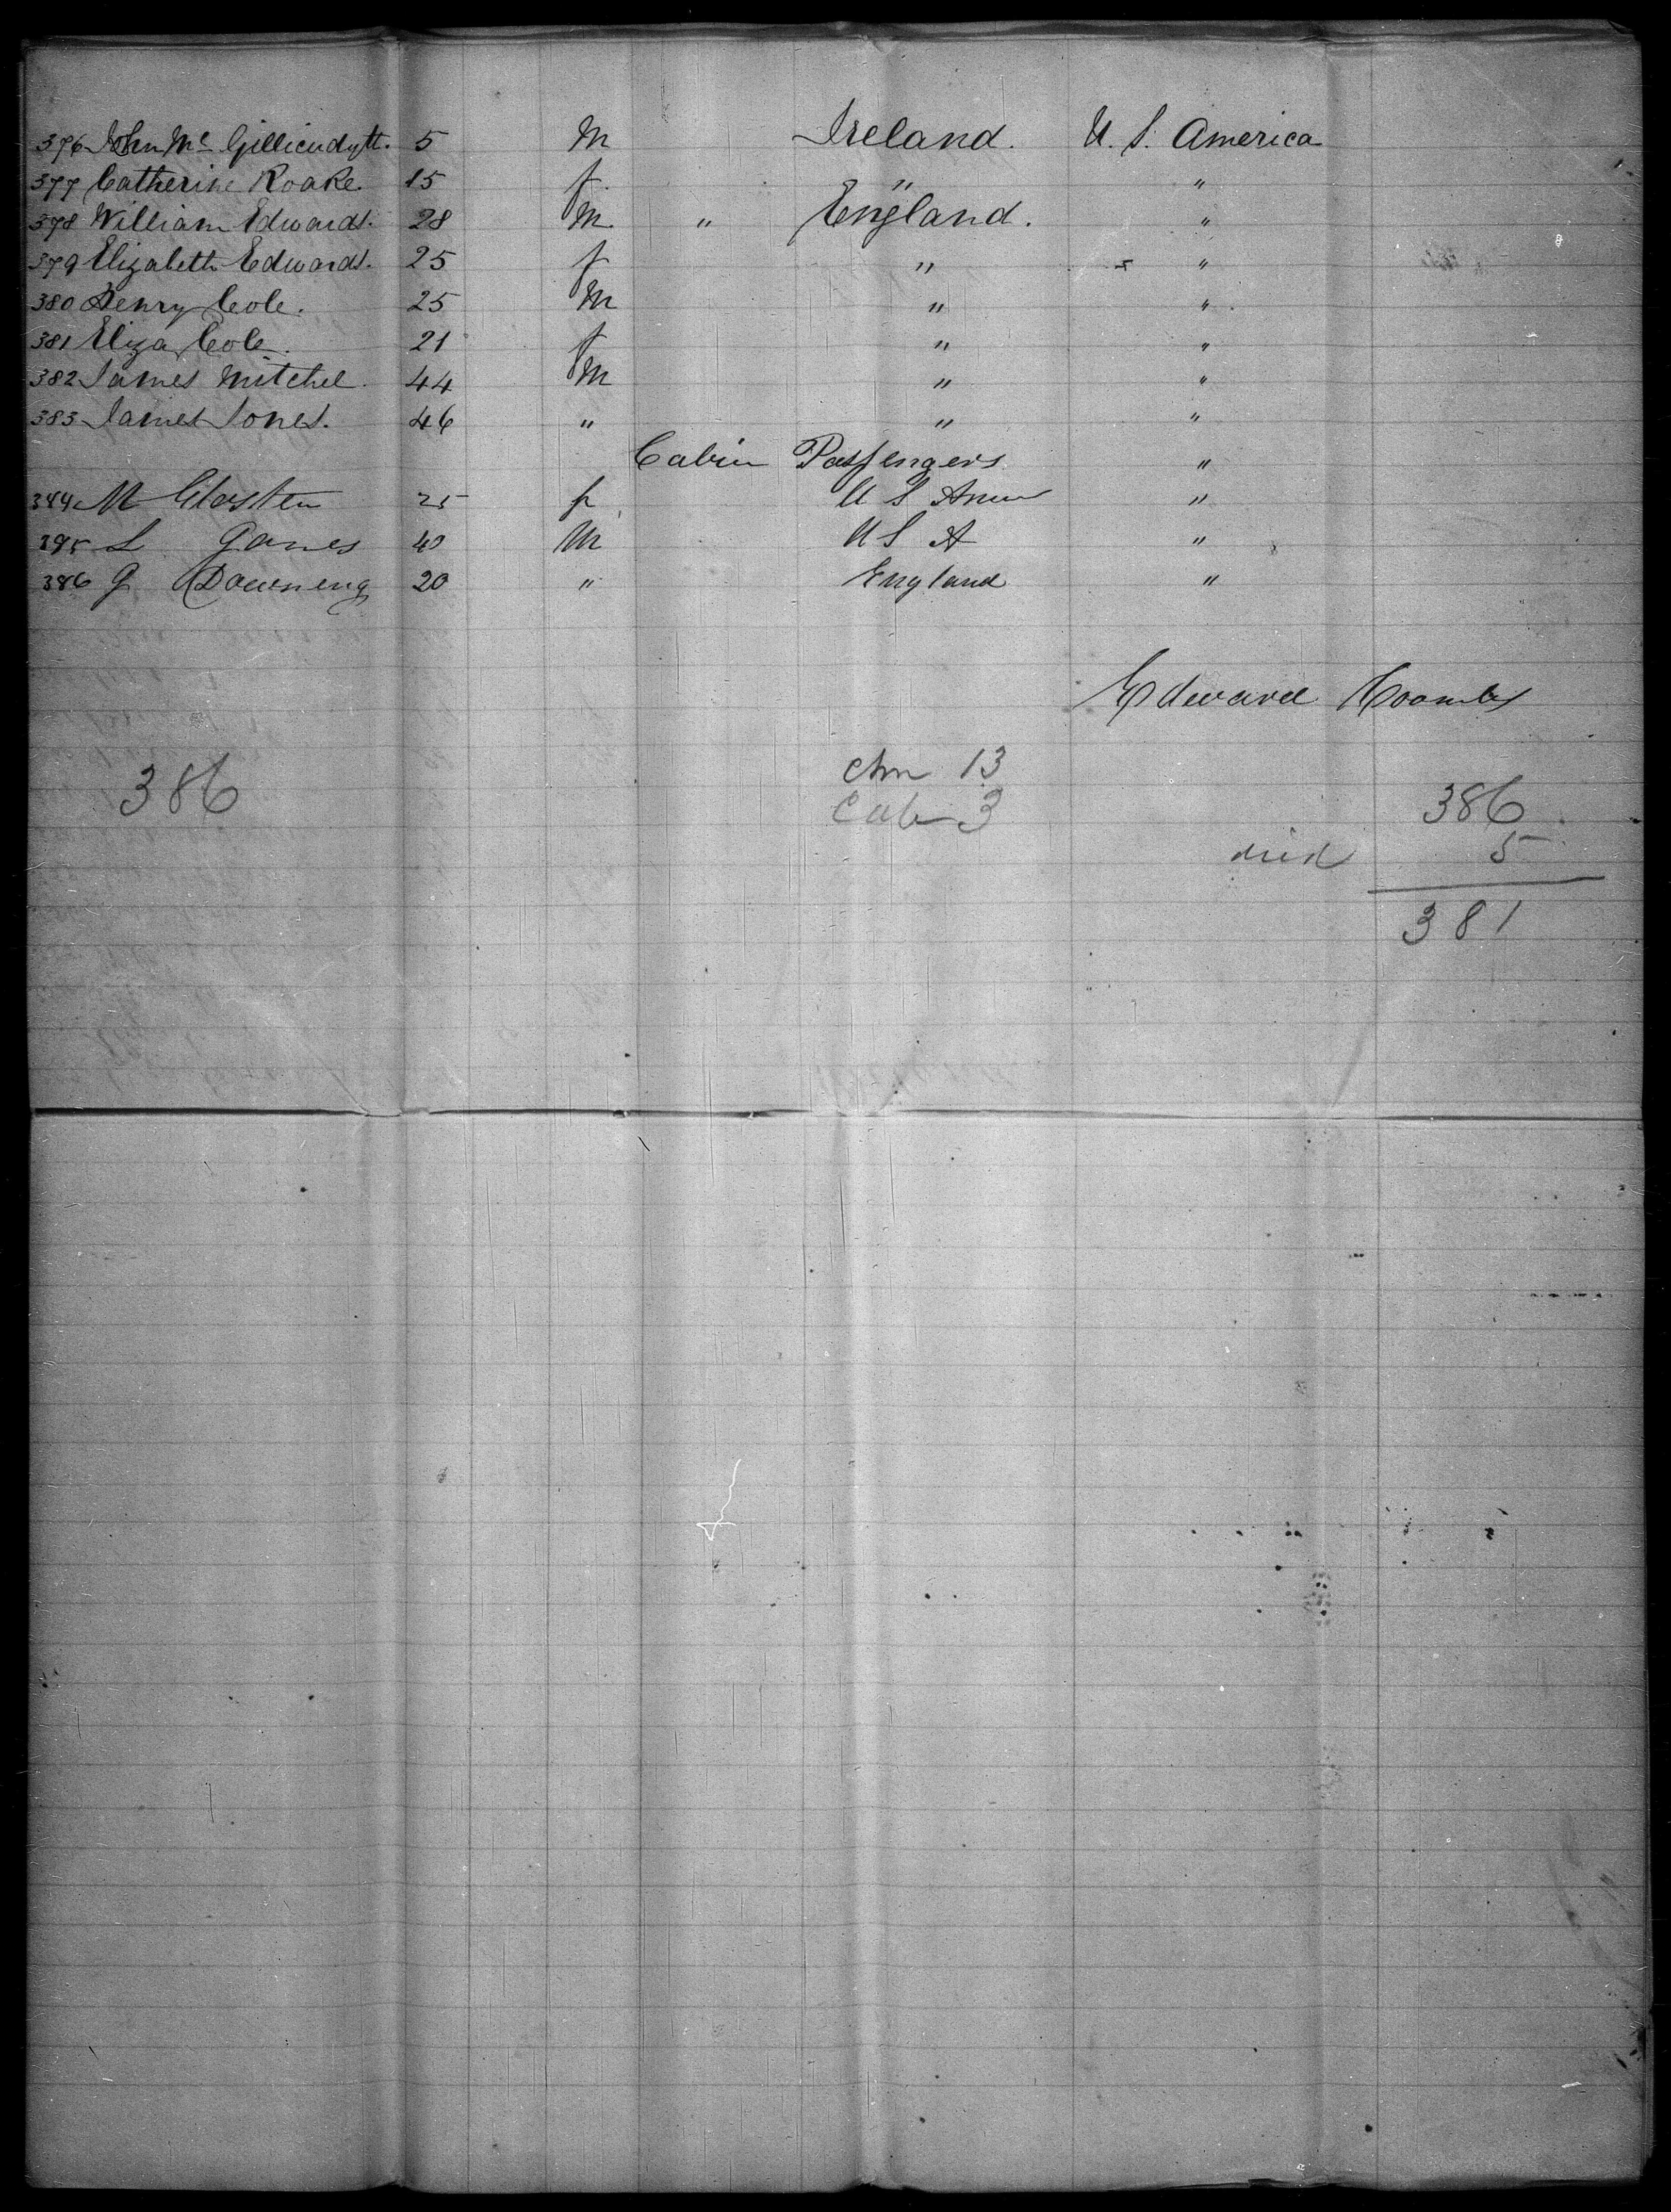 376 John Mc Gillicudytt. 5 M Ireland. U. S. America
377 Catherine Roake. 15 f. " "
378 William Edwards. 28 M. " England. "
379 Elizabeth Edwards. 25 f " "
380 Henry Cole. 25 M " "
381 Eliza Cole. 21 f " "
382 James Mitchel. 44 M " "
383 James Jones. 46 " " "
Cabin Passengers "
384 M 25 f U S Amer "
385 L Ganes 40 M U S A "
386 G Downeng 20 " England "
Edward Coombs
chn 13
386 Cab 3 386
died 5
381